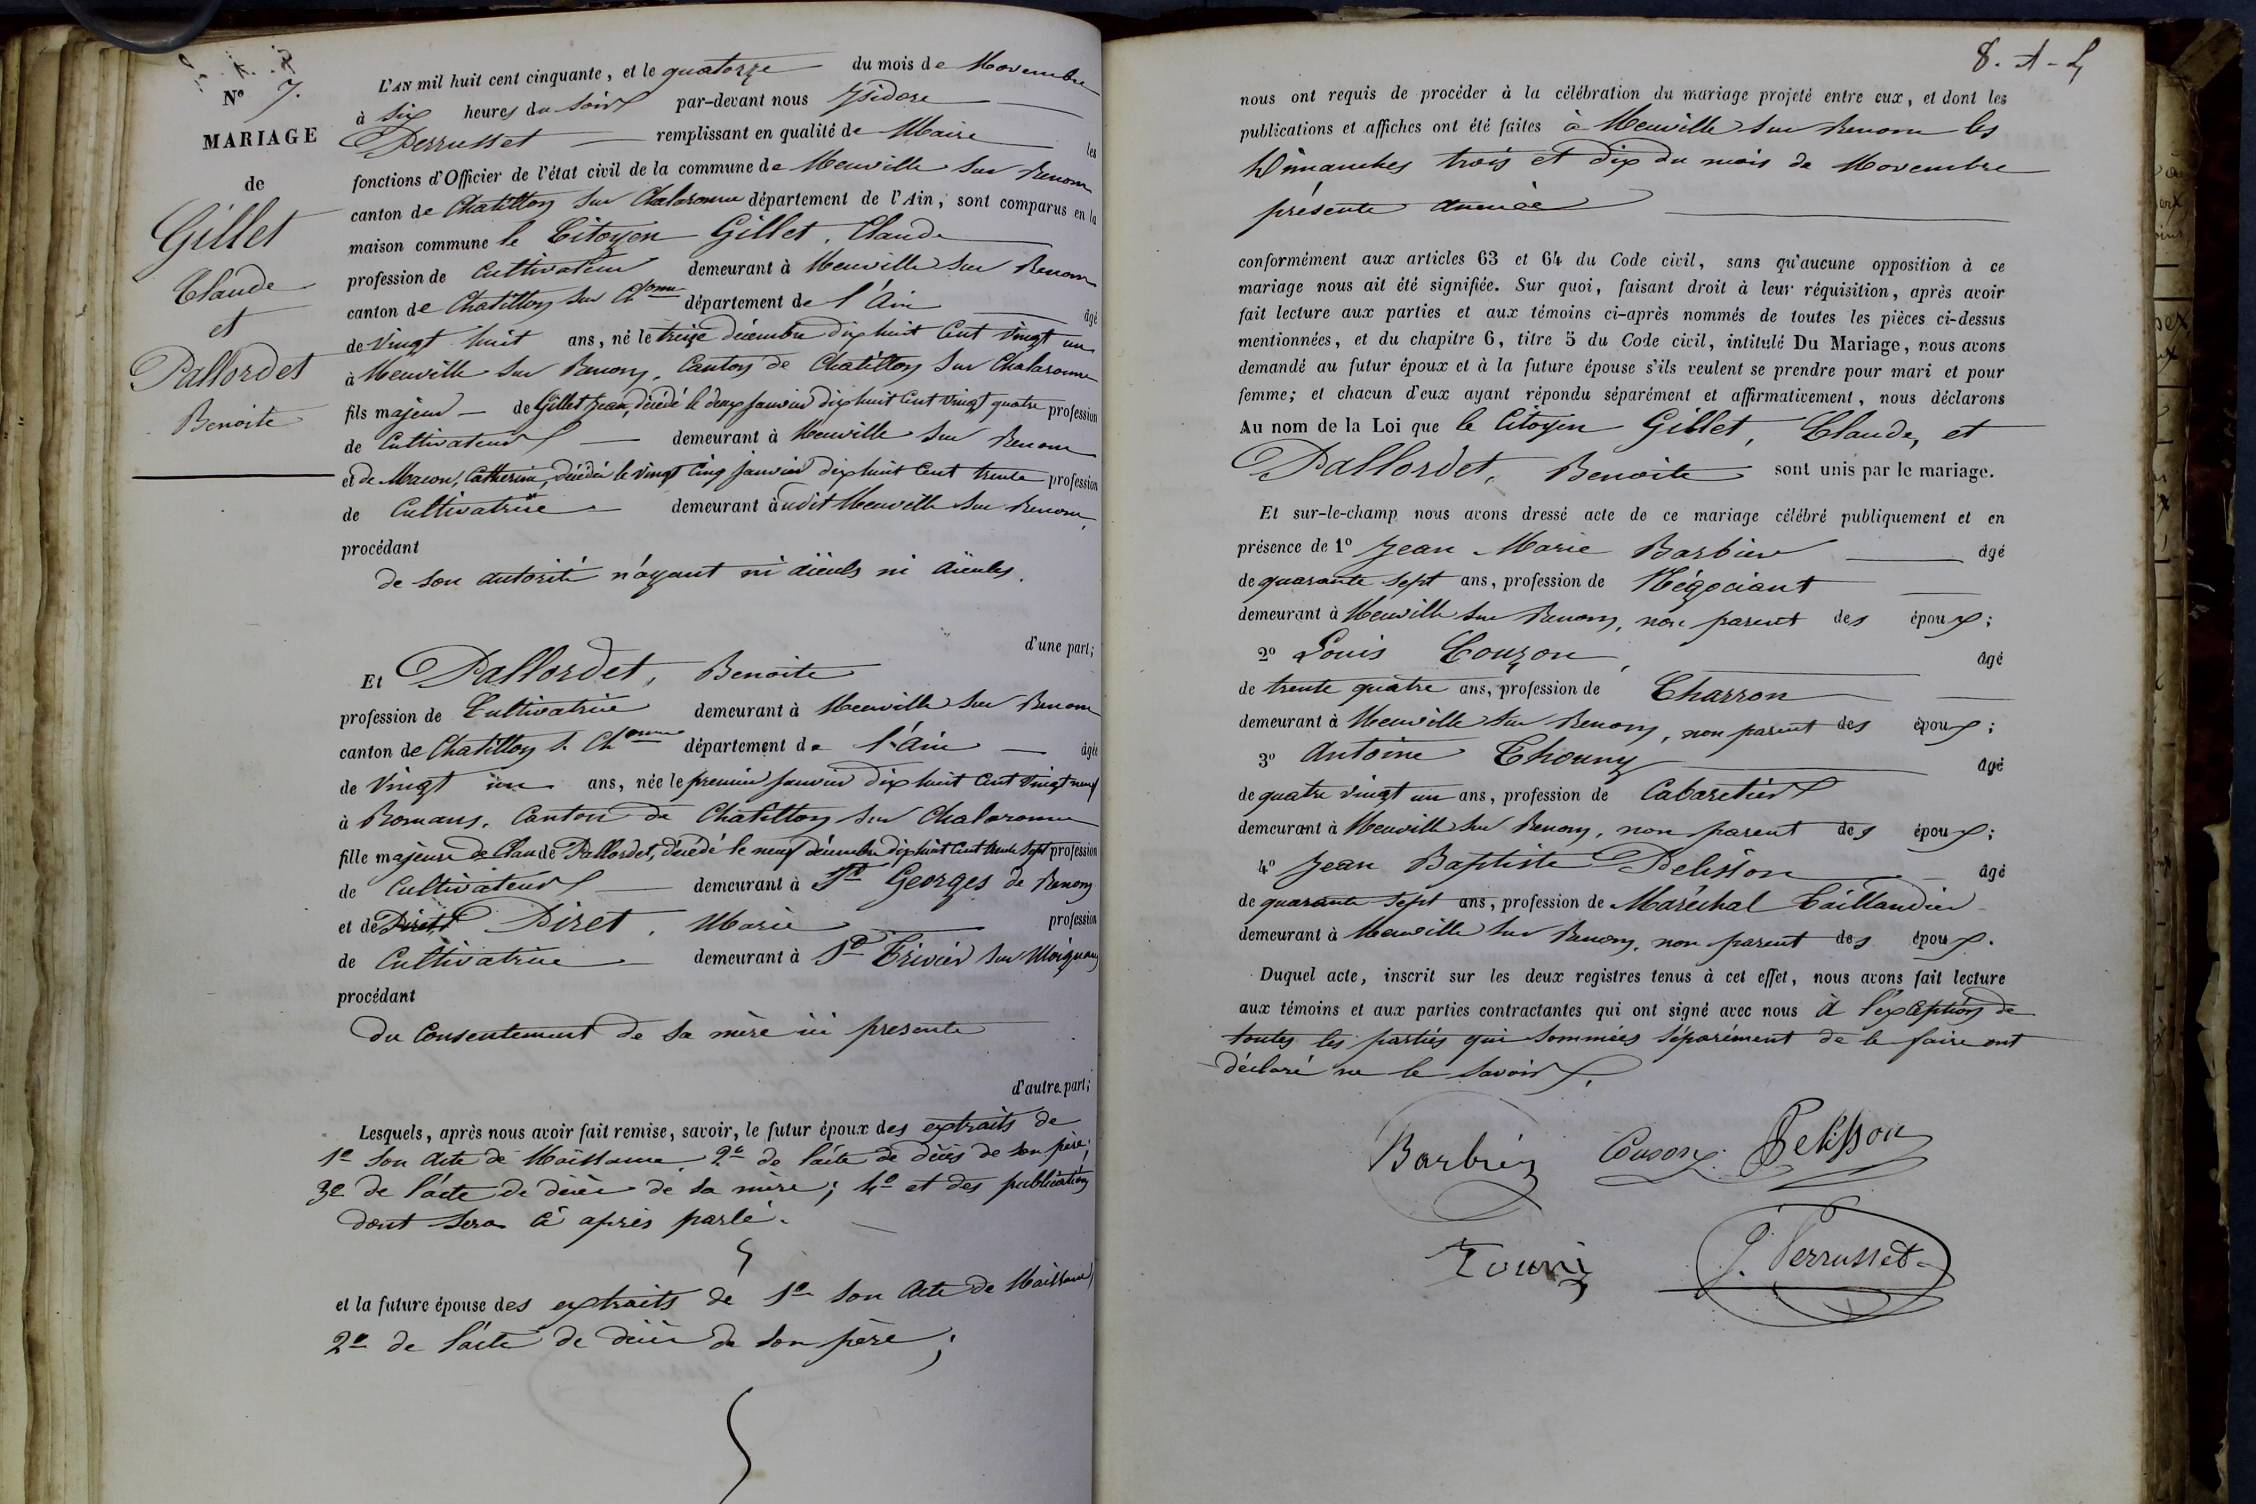 N° 7.
MARIAGE
de
Gillet
Claude
et
Pallordet
Benoite
L'AN mil huit cent cinquante, et le quatorze du mois de Novembre
à six heures du soir par-devant nous Ysidore
Perrusset remplissant en qualité de Maire les
fonctions d'Officier de l'état civil de la commune de Neuville sur Renom
canton de Chatillon sur Chalaronne département de l'Ain, sont comparus en la
maison commune le Citoyen Gillet, Claude
profession de Cultivateur demeurant à Neuville sur Renom
canton de Chatillon sur Chonne département de l'Ain âgé
de vingt huit ans, né le treize décembre dix huit cent vingt un
à Neuville sur Renom, Canton de Chatillon sur Chalaronne
fils majeur de Gillet Jean, décédé le deux janvier dix huit cent vingt quatre profession
de Cultivateur demeurant à Neuville sur Renom
et de Macon, Catherine, décédée le vingt cinq janvier dix huit cent trente profession
de Cultivatrice demeurant à udit Neuville sur Renom,
procédant
de son autorité n'ayant ni aïeuls ni aïeules.
d'une part;
Et Pallordet, Benoite
profession de Cultivatrice demeurant à Neuville sur Renom
canton de Chatillon s. Chonne département de l'Ain âgée
de vingt un ans, née le premier janvier dix huit cent vingt neuf
à Romans, Canton de Chatillon sur Chalaronne
fille majeure de Claude Pallordet, décédé le neuf décembre dix huit cent trente sept profession
de Cultivateur demeurant à St Georges de Renom
et de Piret Piret, Marie profession
de Cultivatrice demeurant à St Trivier sur Moignans
procédant
du Consentement de sa mère ici presente
d'autre part;
Lesquels, après nous avoir fait remise, savoir, le futur époux des extraits de
1° son acte de Naissance, 2° de l'acte de décès de son père;
3° de l'acte de décès de sa mère; 4° et des publications
dont sera ci après parlé.
et la future épouse des extraits de 1° son acte de Naissance
2° de l'acte de décès de son père;
8.
nous ont requis de procéder à la célébration du mariage projeté entre eux, et dont les
publications et affiches ont été faites à Neuville sur Renom les
Dimanches trois et dix du mois de Novembre
présente année
conformément aux articles 63 et 64 du Code civil, sans qu'aucune opposition à ce
mariage nous ait été signifiée. Sur quoi, faisant droit à leur réquisition, après avoir
fait lecture aux parties et aux témoins ci-après nommés de toutes les pièces ci-dessus
mentionnées, et du chapitre 6, titre 5 du Code civil, intitulé Du Mariage, nous avons
demandé au futur époux et à la future épouse s'ils veulent se prendre pour mari et pour
femme; et chacun d'eux ayant répondu séparément et affirmativement, nous déclarons
Au nom de la Loi que le Citoyen Gillet, Claude, et
Pallordet, Benoite sont unis par le mariage.
Et sur-le-champ nous avons dressé acte de ce mariage célébré publiquement et en
présence de 1° Jean Marie Barbier âgé
de quarante sept ans, profession de Négociant
demeurant à Neuville sur Renom, non parent des époux;
2° Louis Couzon, âgé
de trente quatre ans, profession de Charron
demeurant à Neuville sur Renom, non parent des époux;
3° Antoine Thouny âgé
de quatre vingt un ans, profession de Cabaretier
demeurant à Neuville sur Renom, non parent des époux;
4° Jean Baptiste Pelisson âgé
de quarante sept ans, profession de Maréchal Taillandier
demeurant à Neuville sur Renom, non parent des époux.
Duquel acte, inscrit sur les deux registres tenus à cet effet, nous avons fait lecture
aux témoins et aux parties contractantes qui ont signé avec nous à l'exception de
toutes les parties qui sommées séparément de le faire ont
déclaré ne le savoir.
Barbier Couson Pelisson
Touni J. Perrusset